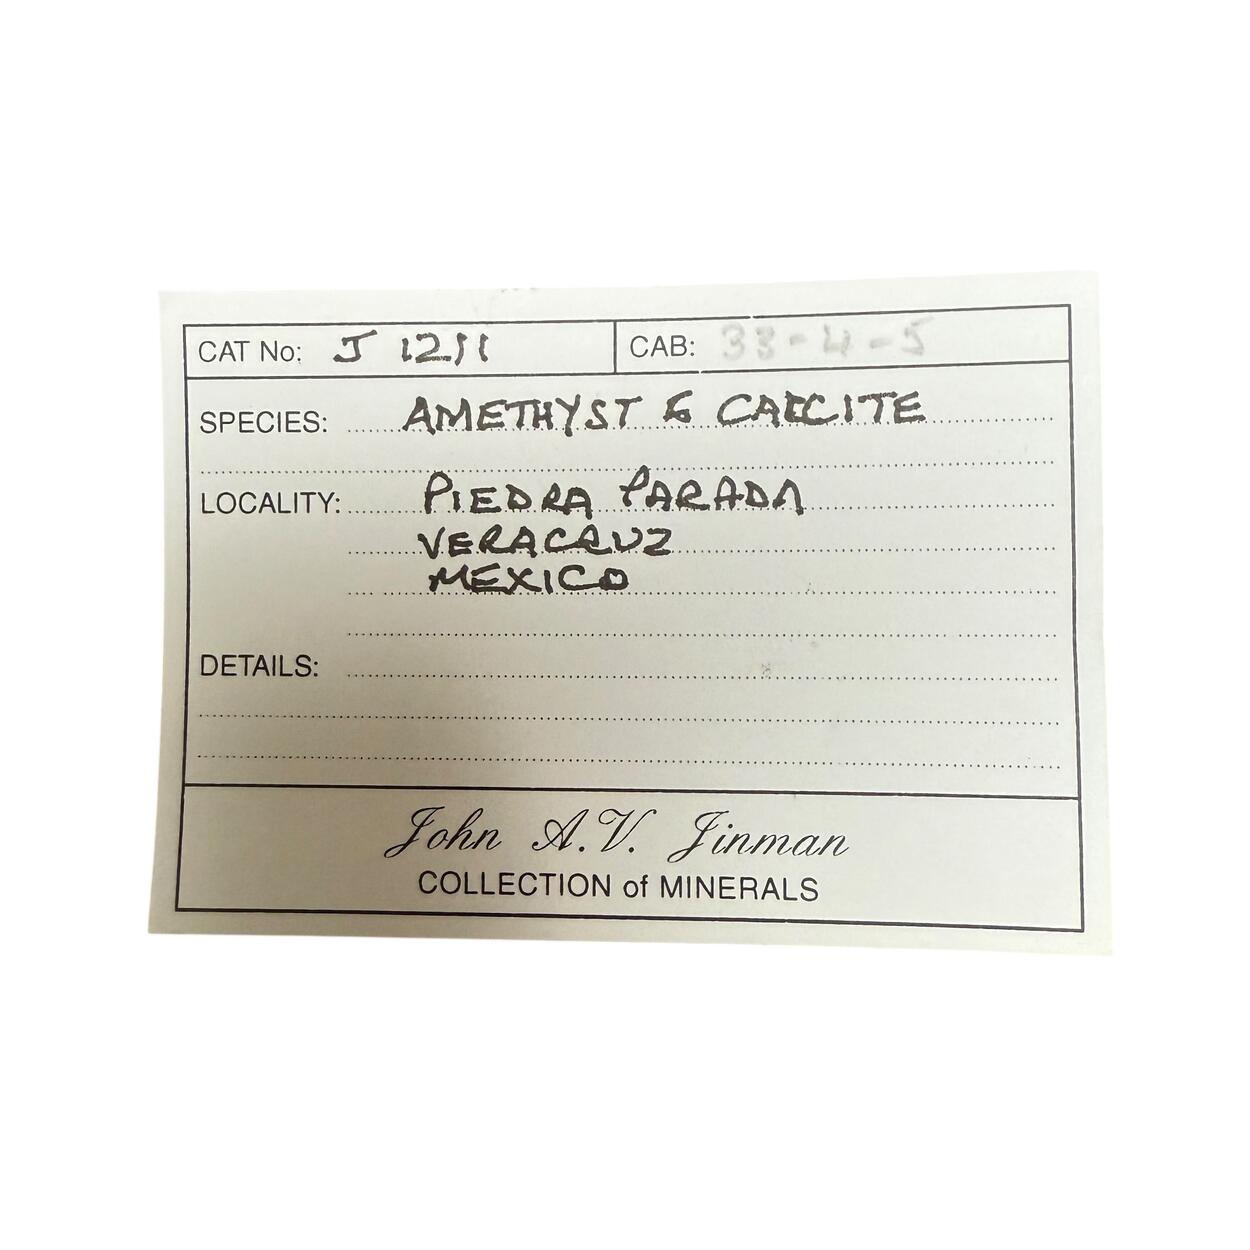 CAT No: J 1211 CAB: 33-4-5
SPECIES: AMETHYST & CALCITE
LOCALITY: PIEDRA PARADA
VERACRUZ
MEXICO
DETAILS:
John A.V. Jinman
COLLECTION of MINERALS